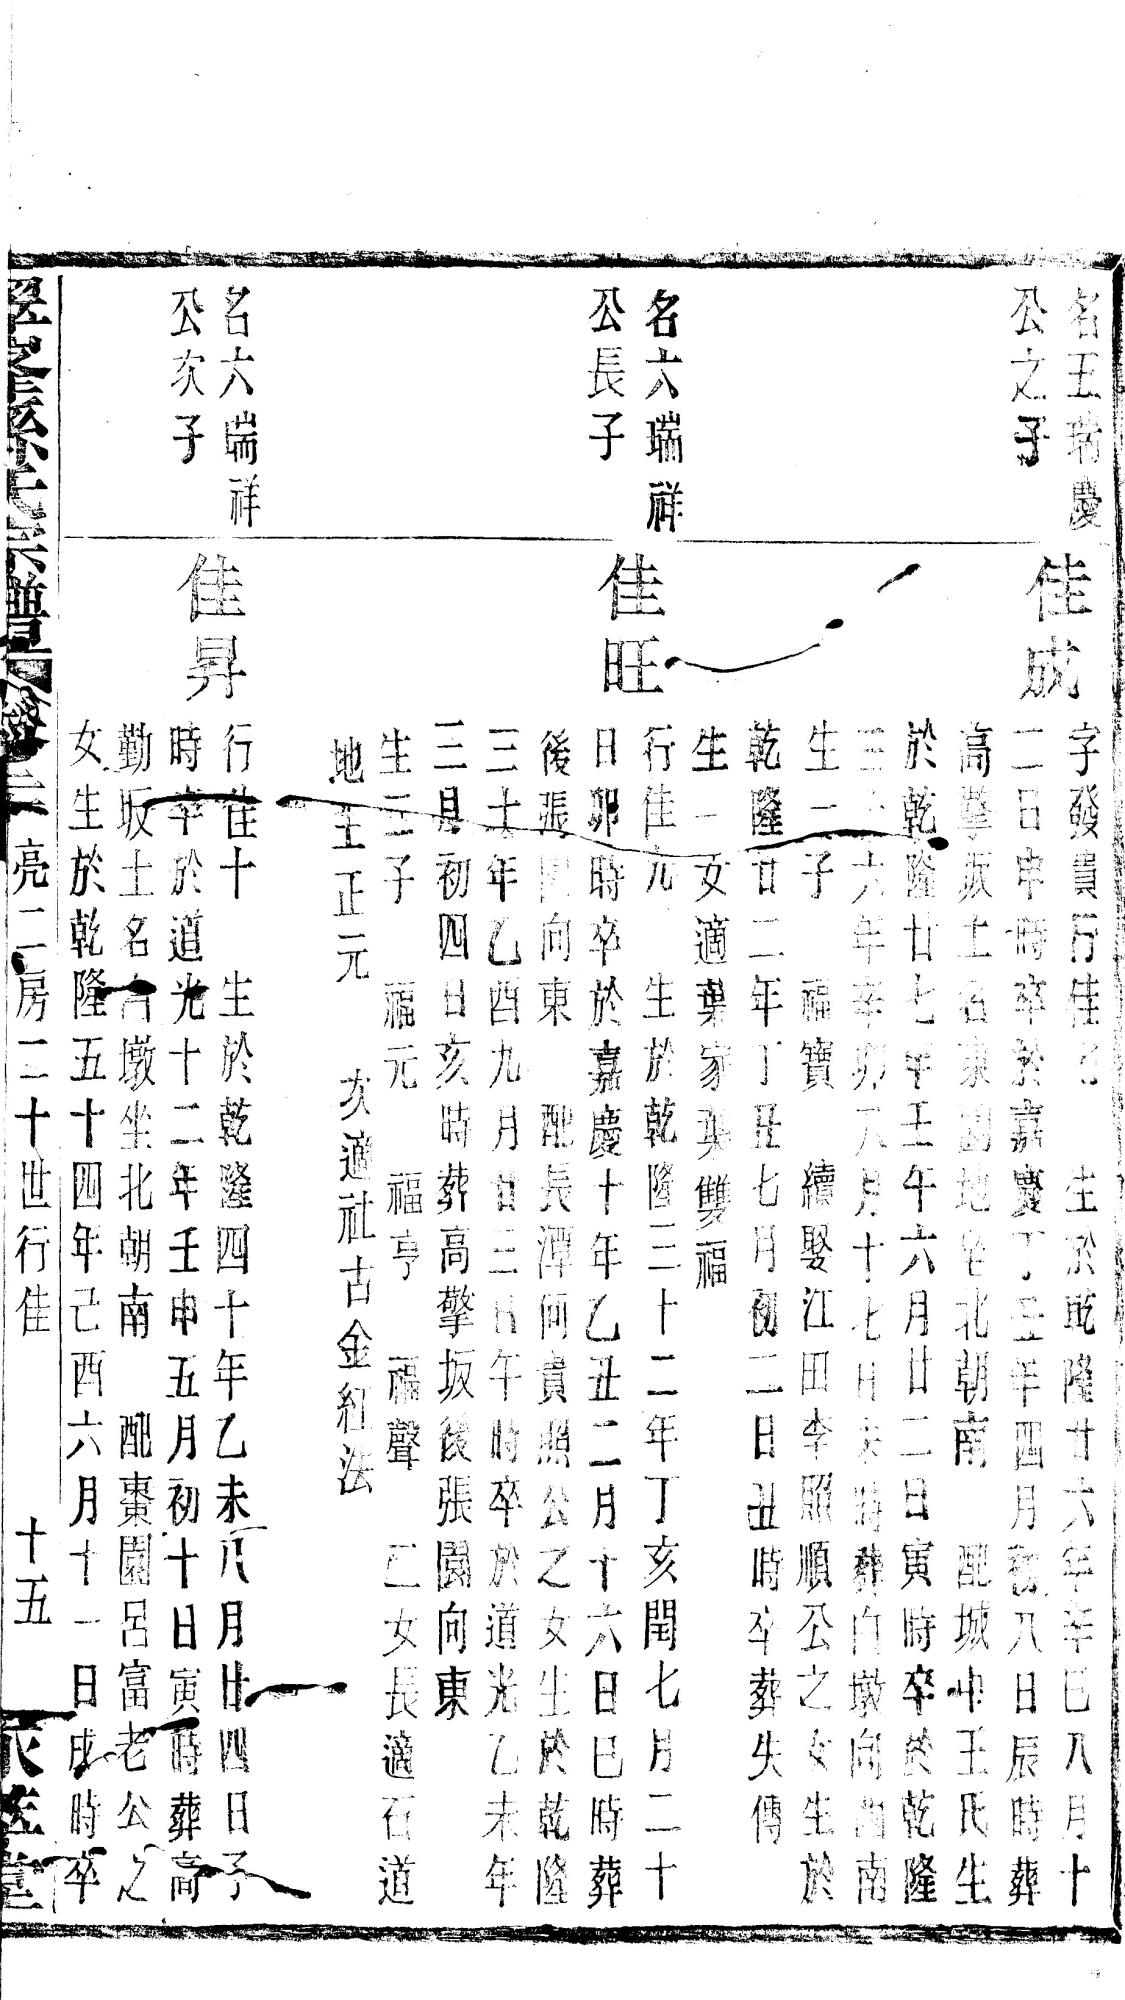 名五瑞慶
公之子
佳成
字發貴行佳 生於乾隆廿六年辛巳八月十
二日申時卒於嘉慶丁丑年四月初八日辰時葬
高擎坂土名東園地坐北朝南 配城中王氏生
於乾隆廿七年壬午六月廿二日寅時卒於乾隆
三十六年辛卯八月十七日未時葬白墩向西南
生一子 福寶 續娶江田李照順公之女生於
乾隆廿二年丁丑七月初二日丑時卒葬失傳
生一女適葉家 雙福
名六瑞祥
公長子
佳旺
行佳九 生於乾隆三十二年丁亥閏七月二十
日卯時卒於嘉慶十年乙丑二月十六日巳時葬
後張園向東 配長潭何貴照公之女生於乾隆
三十年乙酉九月廿三日午時卒於道光乙未年
三月初四日亥時葬高擎坂後張園向東
生三子 福元 福亨 福聲 二女長適石道
地王正元 次適社古金紅法
名六瑞祥
公次子
佳昇
行佳十 生於乾隆四十年乙未八月廿四日子
時卒於道光十二年壬申五月初十日寅時葬高
勤坂土名白墩坐北朝南 配棗園呂富老公之
女生於乾隆五十四年己酉六月十一日戌時卒
氏宗譜 卷二 亮二房二十世行佳 十五 堂